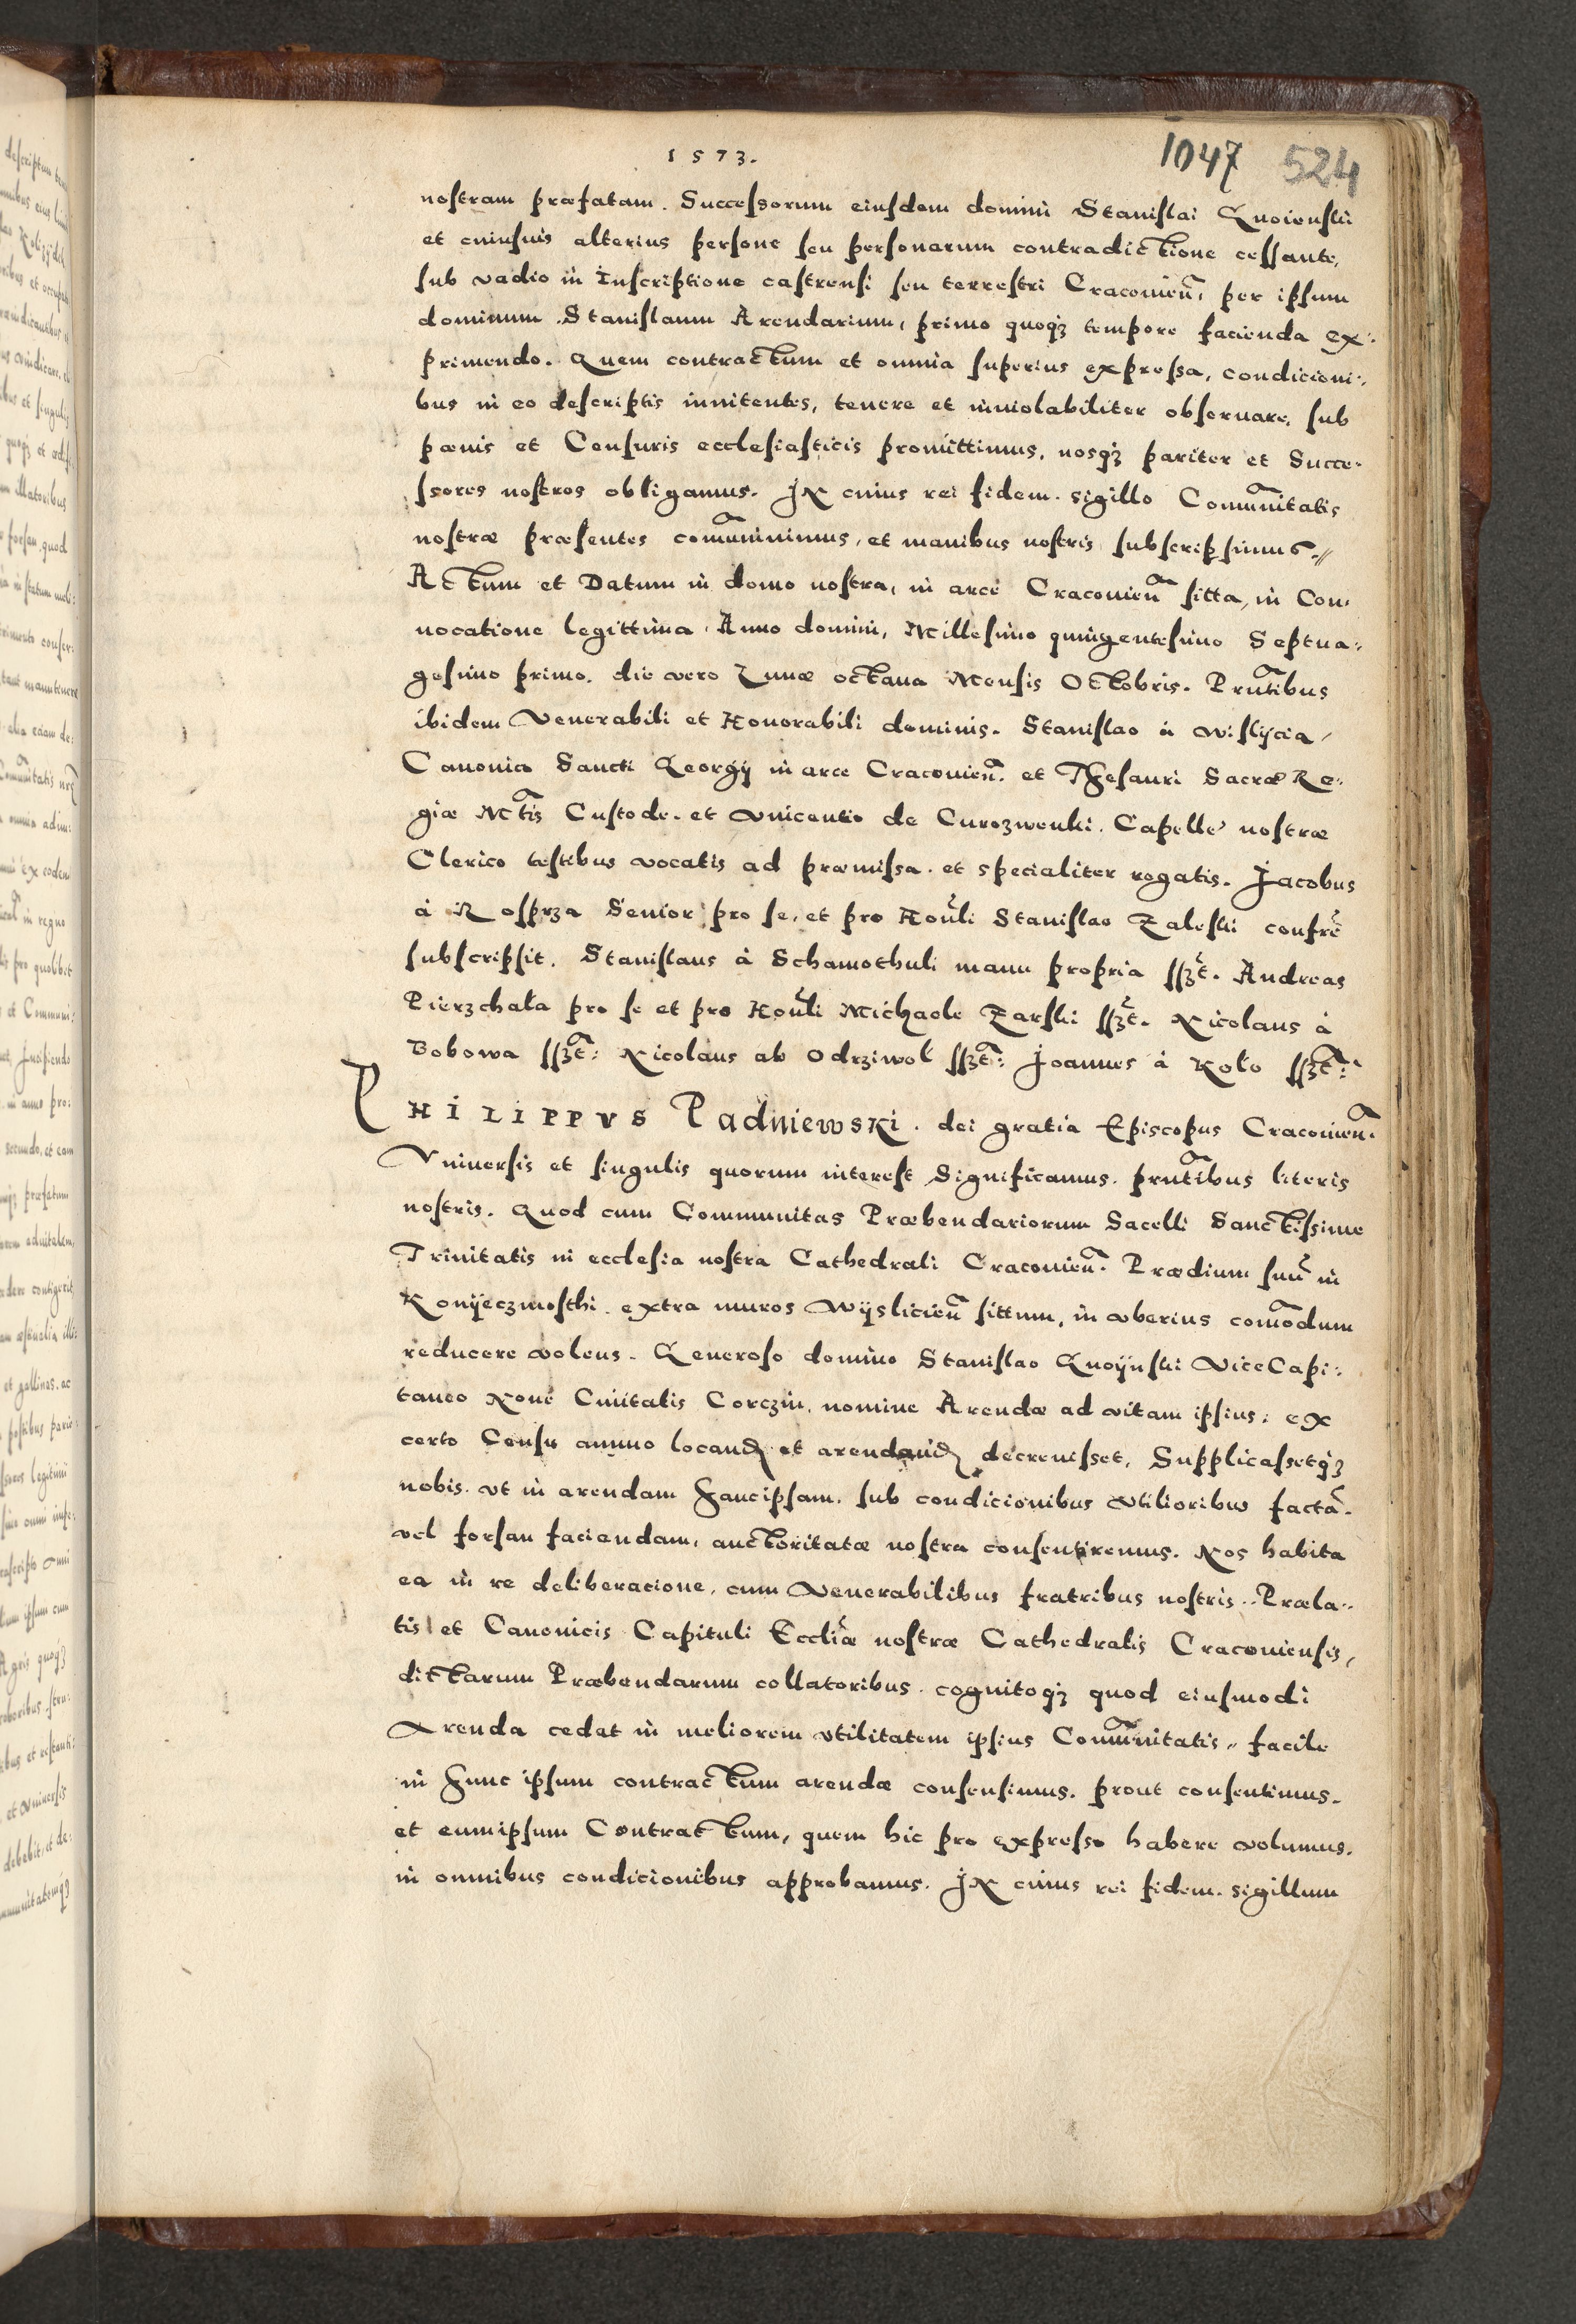 1573.
1047 524
nostram præfatam. Successorum eiusdem domini Stanislai Gnoienski
et cuiusuis alterius persone seu personarum contradictione cessante,
sub vadio in Inscriptione castrensi seu terrestri Cracouien̄, per ipsum
dominum Stanislaum Arendarium, primo quoqꝫ tempore facienda ex:
primendo. Quem contractum et omnia superius expressa, condicioni:
bus in eo descriptis innitentes, tenere et inuiolabiliter obseruare, sub
pænis et Censuris ecclesiasticis promittimus, nosqꝫ pariter et Succe:
ssores nostros obligamus. IN cuius rei fidem. sigillo Com̄unitatis
nostræ præsentes com̄uniuimus, et manibus nostris subscripsimus.//
Actum et Datum in domo nostra, in arce Cracouien̄ sitta, in Con:
uocatione legittima. Anno domini, Millesimo quingentesimo Septua:
gesimo primo. die vero Lunæ octaua Mensis Octobris. Prn̄tibus
ibidem Venerabili et Honorabili dominis. Stanislao à Wislijcia,
Canonico Sancti Georgij in arce Cracouien̄. et Thesauri Sacræ Re:
giæ Mt̄is Custode. et Vnicentio de Curozwenki. Capelle nostræ
Clerico testibus vocatis ad præmissa. et specialiter rogatis. Jacobus
à Rosprza Senior pro se, et pro Hon̄li Stanislao Zaleski confrē
subscripsit. Stanislaus à Schamothuli manu propria ssꝫt̄. Andreas
Pierzchała pro se et pro Hon̄li Michaele Zarski ssꝫt̄. Nicolaus à
Bobowa ssꝫt̄: Nicolaus ab Odrziwol ssꝫt̄: Joannes à Koło ssꝫt̄:
PHILIPPVS Padniewski. dei gratia Episcopus Cracouien̄.
Vniuersis et singulis quorum interest Significamus. prn̄tibus literis
nostris. Quod cum Communitas Præbendariorum Sacelli Sanctissime
Trinitatis in ecclesia nostra Cathedrali Cracouien̄. Prædium suū in
Konijeczmosthi extra muros Wijslicien̄ sittum, in vberius com̄odum
reducere volens. Generoso domino Stanislao Gnoijnski ViceCapi:
taneo Noue Ciuitatis Corczin, nomine Arendæ ad vitam ipsius: ex
certo Censu annuo locand̨ et arendand̨ decreuisset, Supplicassetqꝫ
nobis. vt in arendam hancipsam. sub condicionibus vtilioribus factā.
vel forsan faciendam, auctoritatæ nostra consentiremus. Nos habita
ea in re deliberacione, cum Venerabilibus fratribus nostris. Præla:
tis et Canonicis Capituli Eccliǣ nostræ Cathedralis Cracouiensis,
dictarum Præbendarum collatoribus. cognitoqꝫ quod eiusmodi
Arenda cedat in meliorem vtilitatem ipsius Com̄unitatis, facile
in hunc ipsum contractum arendæ consensimus. prout consentimus.
et eumipsum Contractum, quem hic pro expresso habere volumus.
in omnibus condicionibus approbamus. IN cuius rei fidem. sigillum